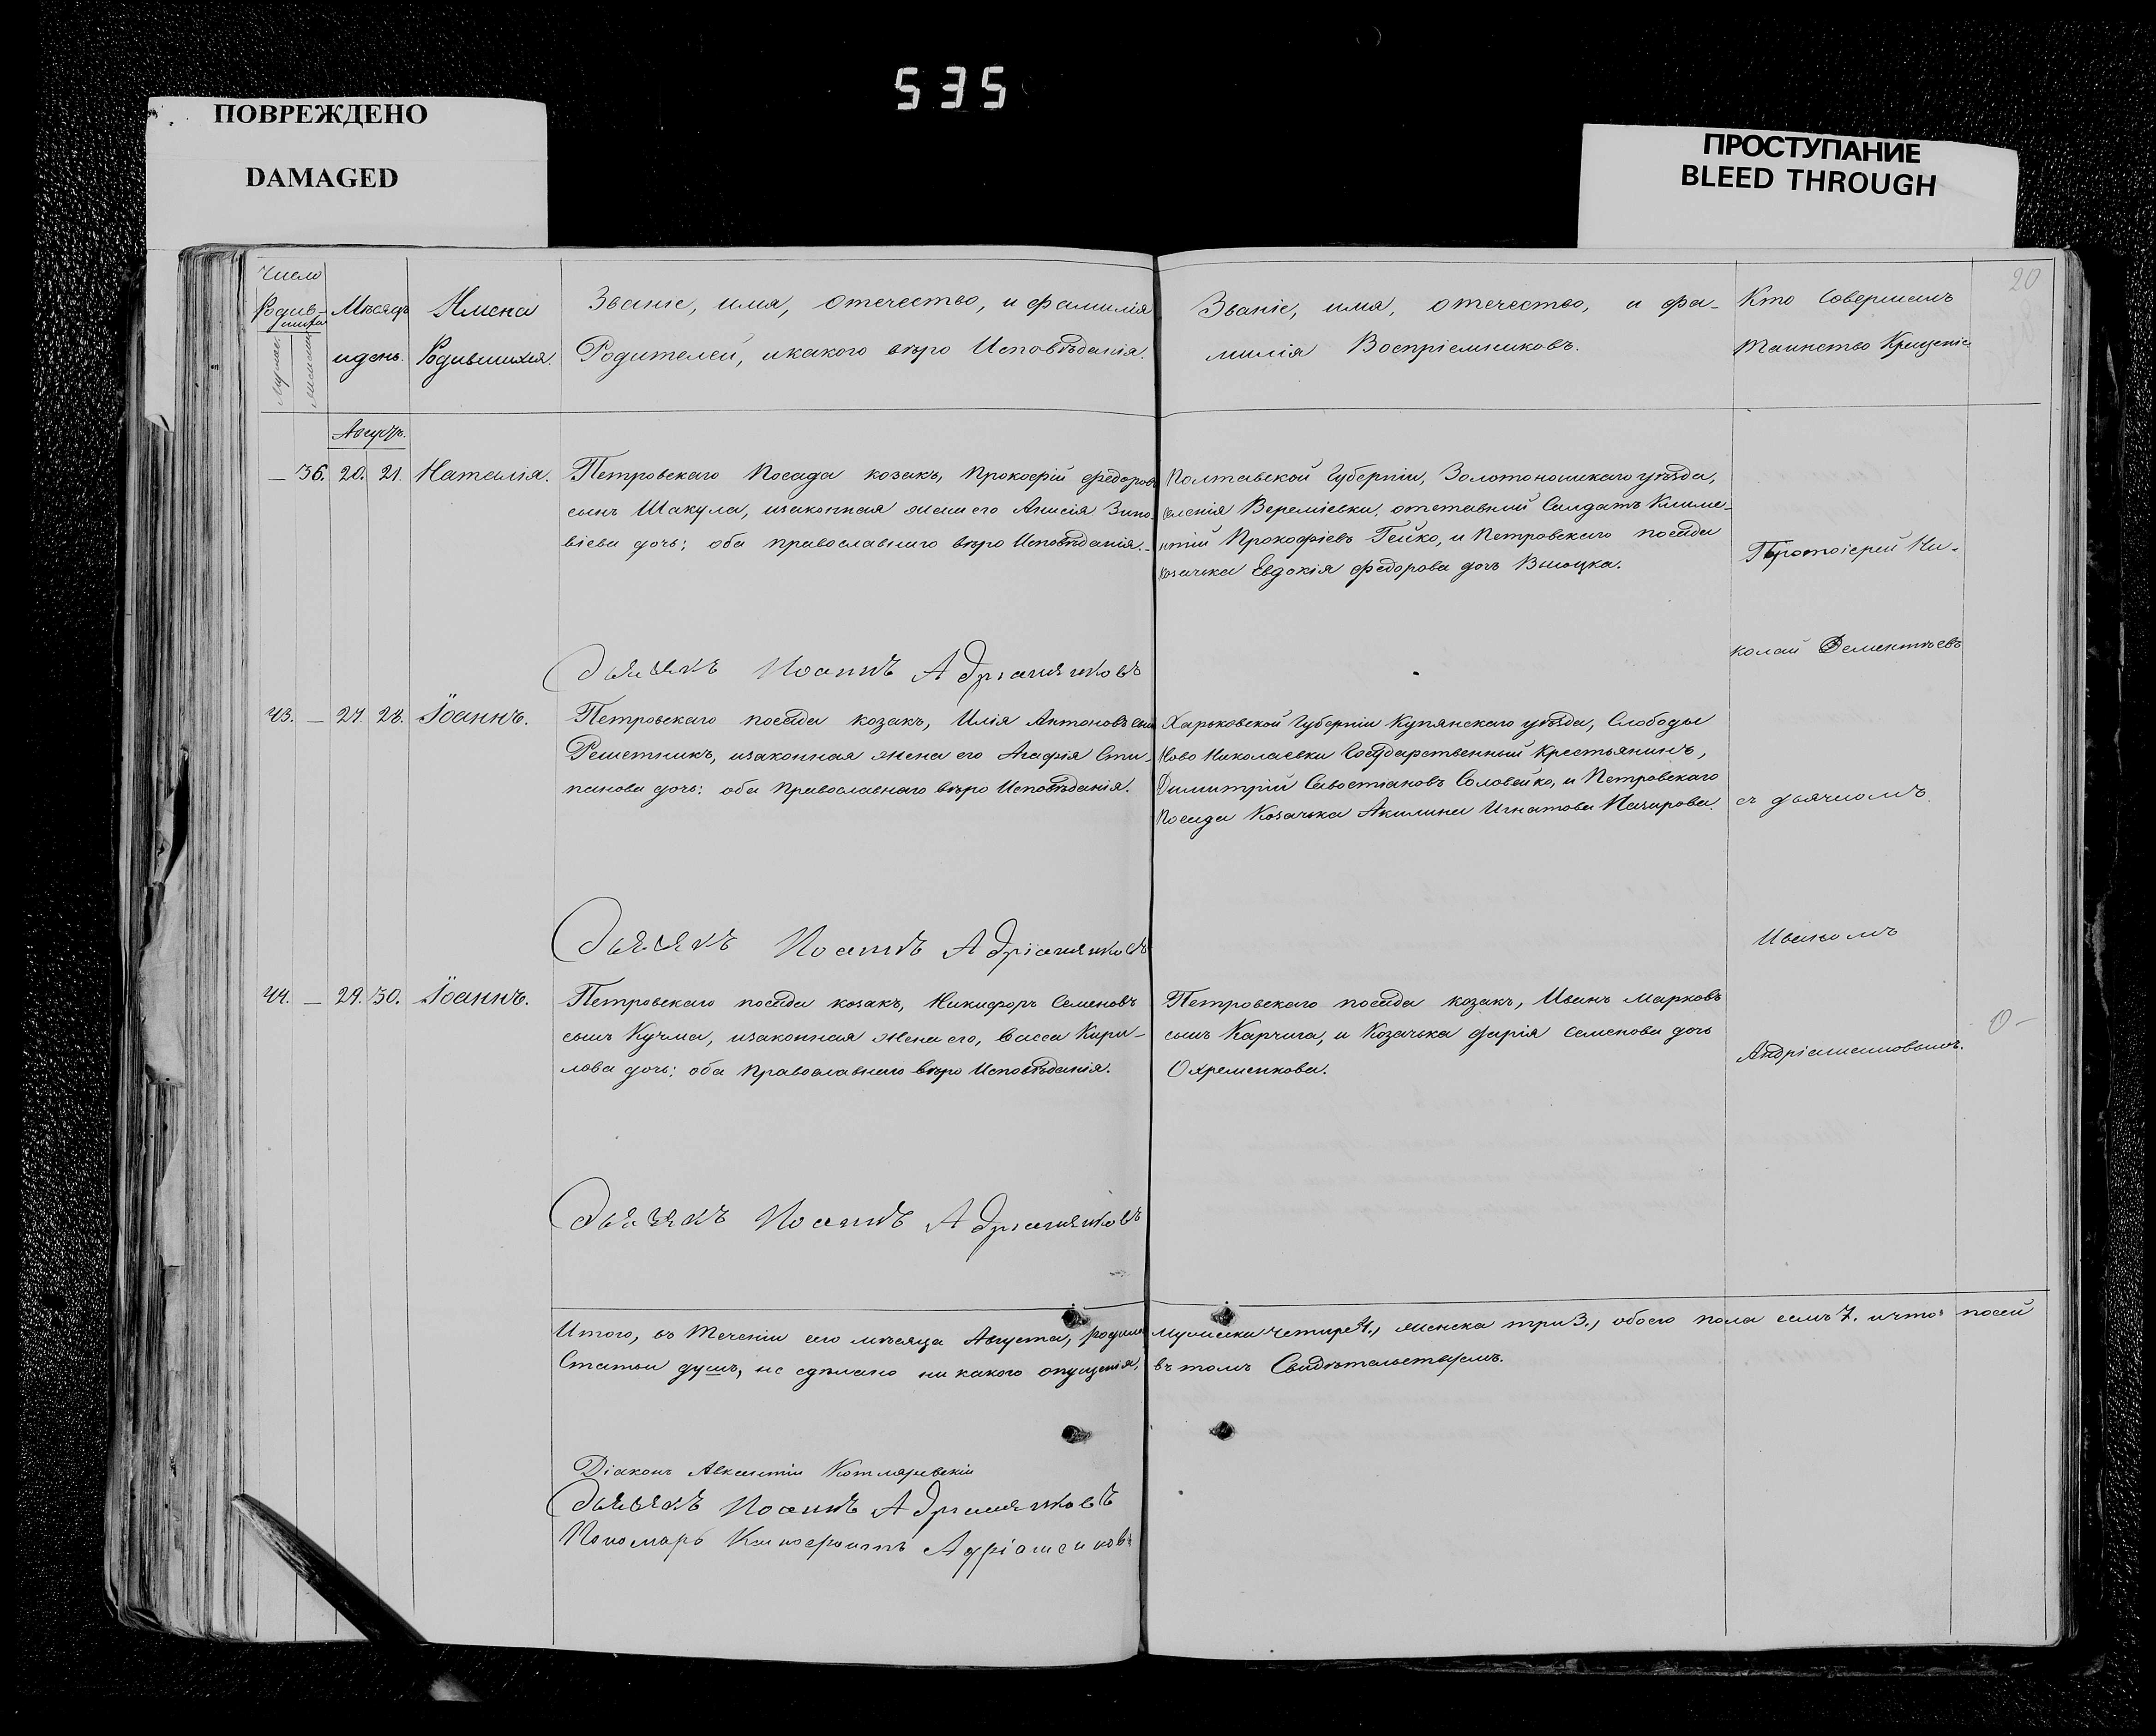 535
ПОВРЕЖДЕНО
DAMAGED
ПРОСТУПАНИЕ
BLEED THROUGH
20
Число
Родив-
шихся
Мѣсяцъ
и день.
Имена
Родившихся.
Званіе, имя, отечество, и фамилія
Родителей, и какого вѣро Исповѣданія.
Званіе, имя, отечество, и фа-
милія Воспріемниковъ.
Кто Совершалъ
Таинство Крещенія
Августъ.
— 36. 20. 21. Наталія.
Петровскаго Посада козакъ, Прокофій Федоровъ
сынъ Шакула, и законная жена его Анисія Зино-
віева дочь; оба православнаго вѣро Исповѣданія.
Полтавской Губерніи, Золотоношскаго уѣзда,
селенія Веремѣевки, отставный Салдатъ Климе-
нтій Прокофіевъ Гейко, и Петровскаго посада
козачка Евдокія Федорова дочь Высоцка.
Протоіерей Ни-
колай Дементьевъ
Дьячекъ Иоаннъ Адріановъ
43. — 27. 28. Іоаннъ.
Петровскаго посада козакъ, Илія Антоновъ сынъ
Решетникъ, и законная жена его Агафія Сти-
панова дочь; оба Православнаго вѣро Исповѣданія.
Харьковской Губерніи Купянскаго уѣзда, Слободы
Ново Николаевки Государственный Крестьянинъ,
Димитрій Савостіановъ Соловейко, и Петровскаго
Посада Козачка Акилина Игнатова Назарова.
съ дьячкомъ
Дьячекъ Иоаннъ Адріаненковъ
Иваномъ
44. — 29. 30. Іоаннъ.
Петровскаго посада козакъ, Никифоръ Семеновъ
сынъ Кучма, и законная жена его, Васса Кири-
лова дочь; оба Православнаго вѣро Исповѣданія.
Петровскаго посада козакъ, Иванъ Марковъ
сынъ Карчига, и Козачька Дарія Семенова дочь
Охременкова.
Андріяненковымъ.
Дьячекъ Иоаннъ Адріаненковъ
Итого, въ теченіи сего мѣсяца Августа, родилось мужеска четыре 4., женска три 3., обоего пола семь 7. и что посей
Статьи душъ, не сдѣлано ни какого опущенія, въ томъ Свидѣтельствуемъ.
Діаконъ Авксентій Котляревскій
Дьячекъ Иоаннъ Адріаненковъ
Пономарь Ксенофонтъ Адріаненковъ